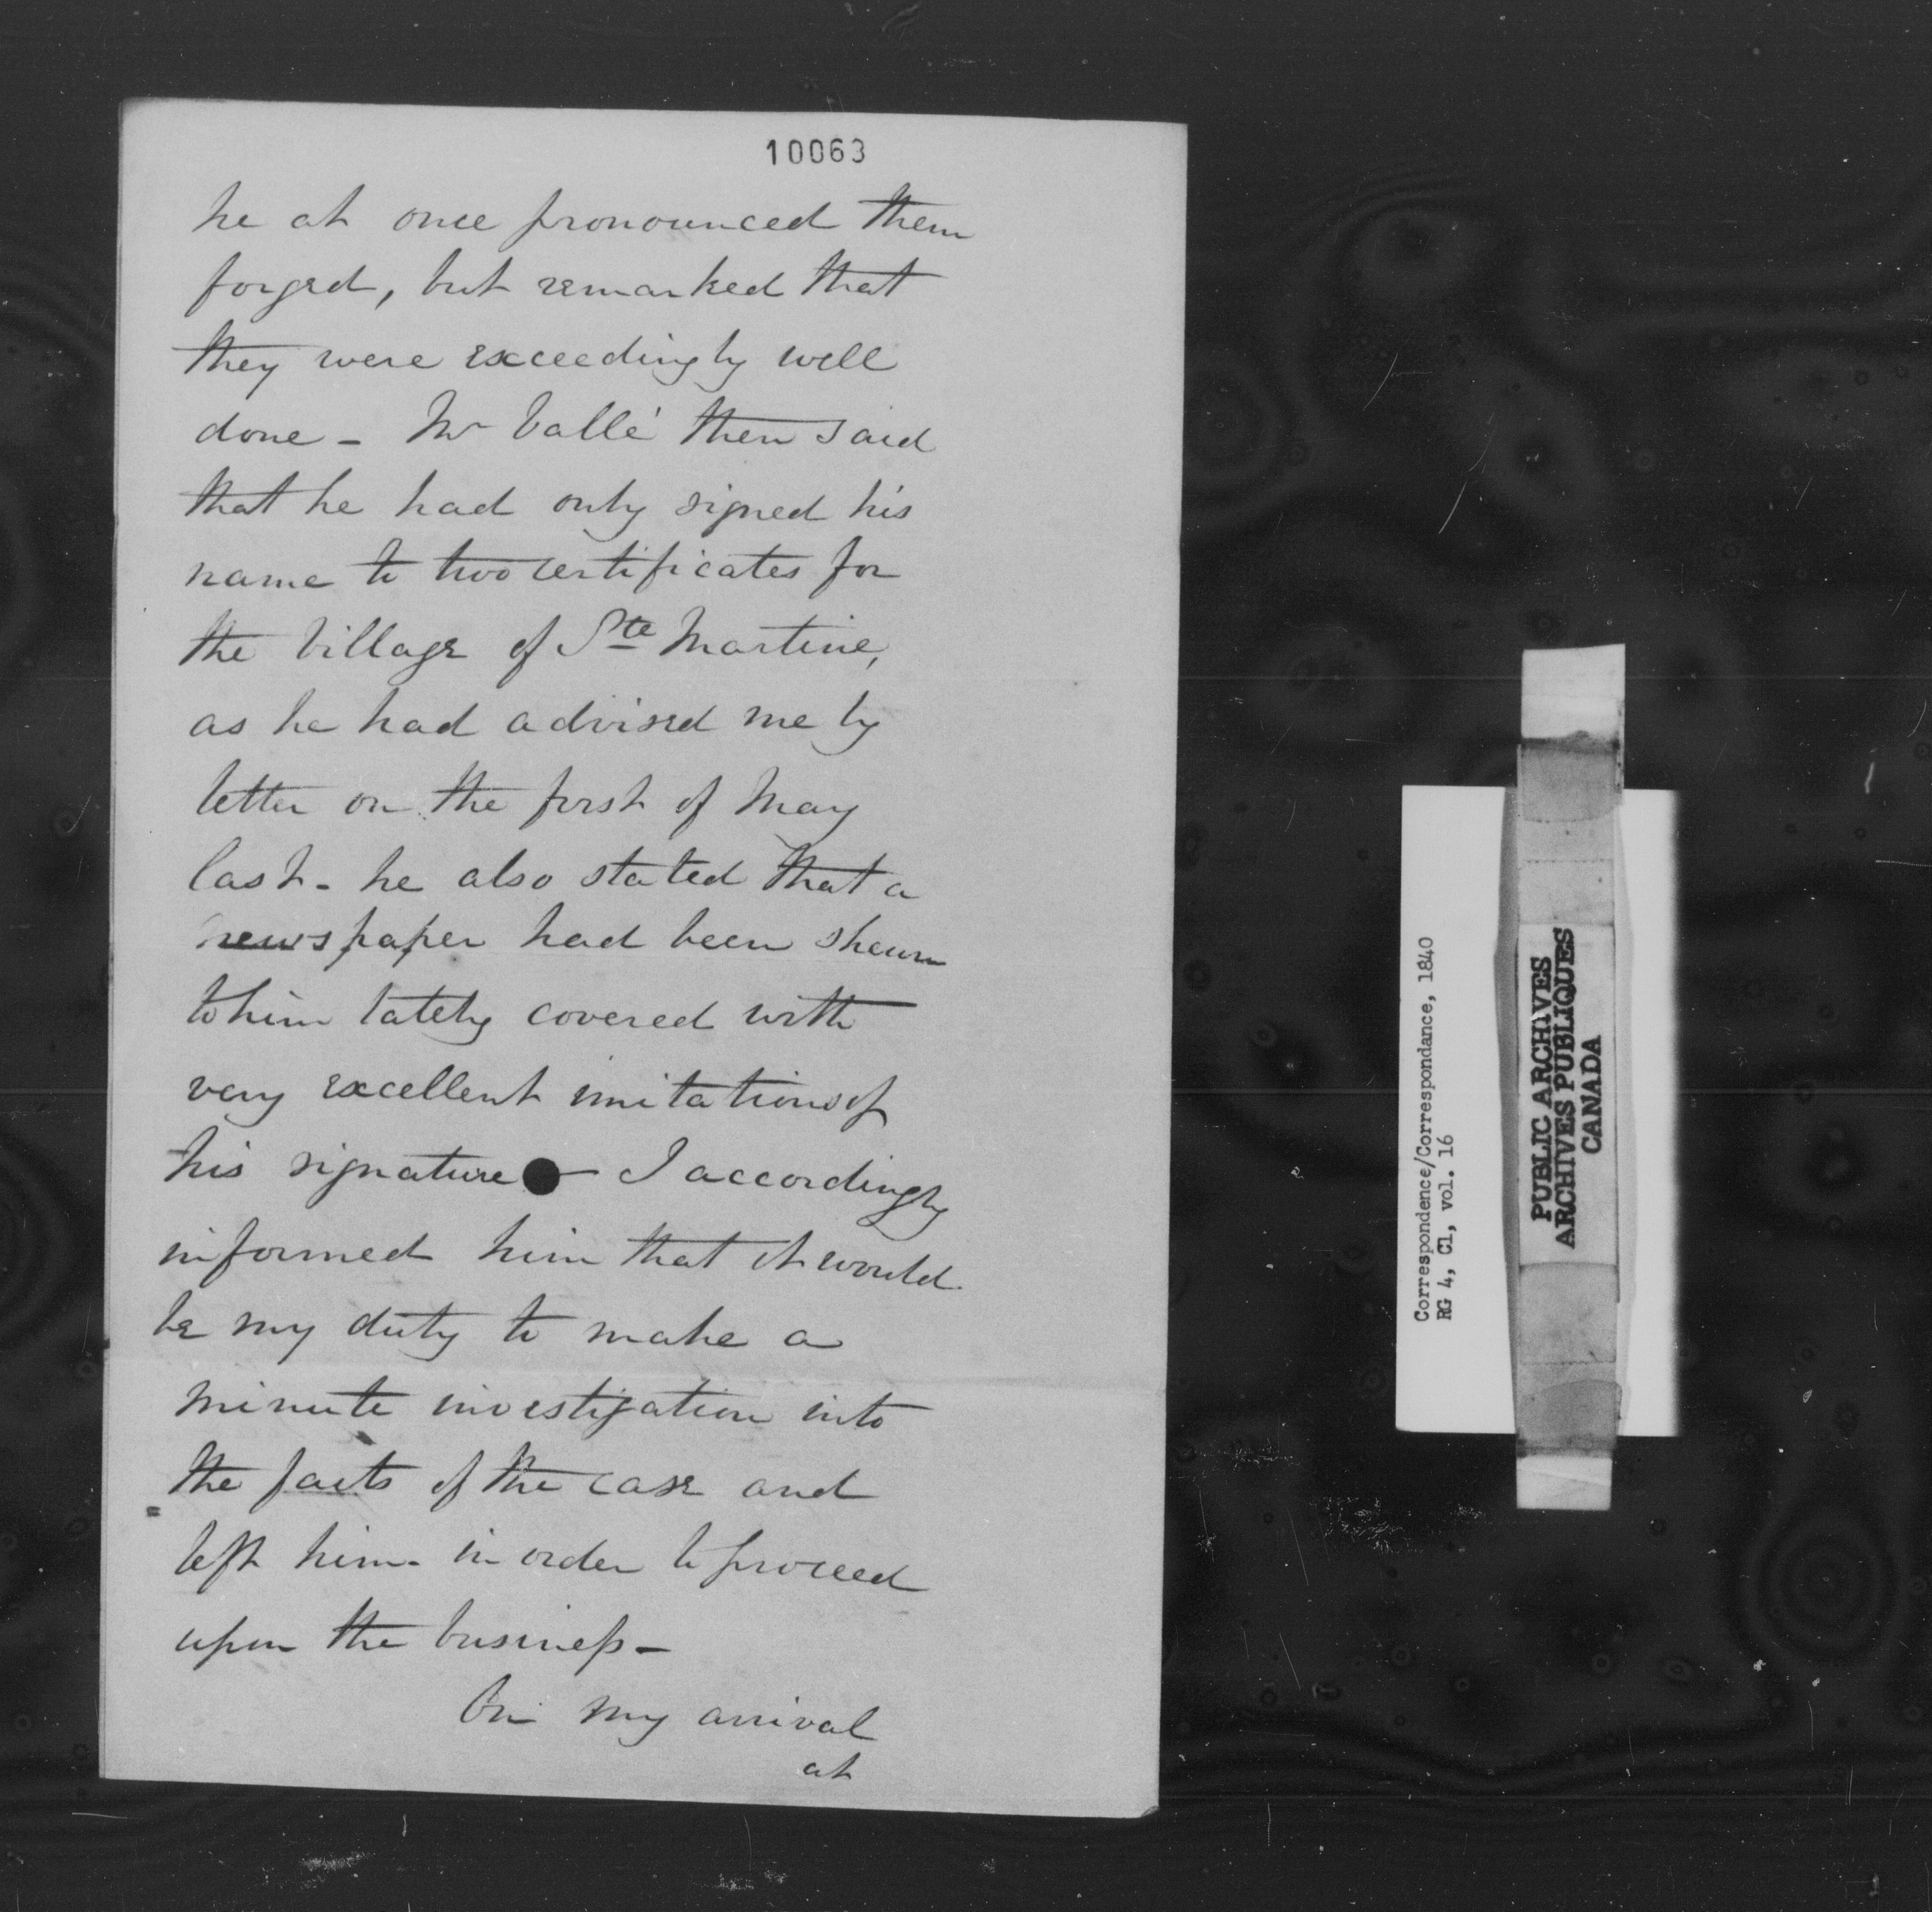 10063
he at once pronounced them
forged, but remarked that
they were exceedingly well
done - Mr Vallé then said
that he had only signed his
name to two certificates for
the Village of Ste Martine,
as he had advised me by
letter on the first of May
last - he also stated that a
newspaper had been shewn
to him lately covered with
very excellent imitations of
his signature - I accordingly
informed him that it would
be my duty to make a
minute investigation into
the facts of the case and
left him - in order to proceed
upon the business -
On my arrival
at
Correspondence/Correspondance, 1840
RG 4, C1, vol. 16
PUBLIC ARCHIVES
ARCHIVES PUBLIQUES
CANADA